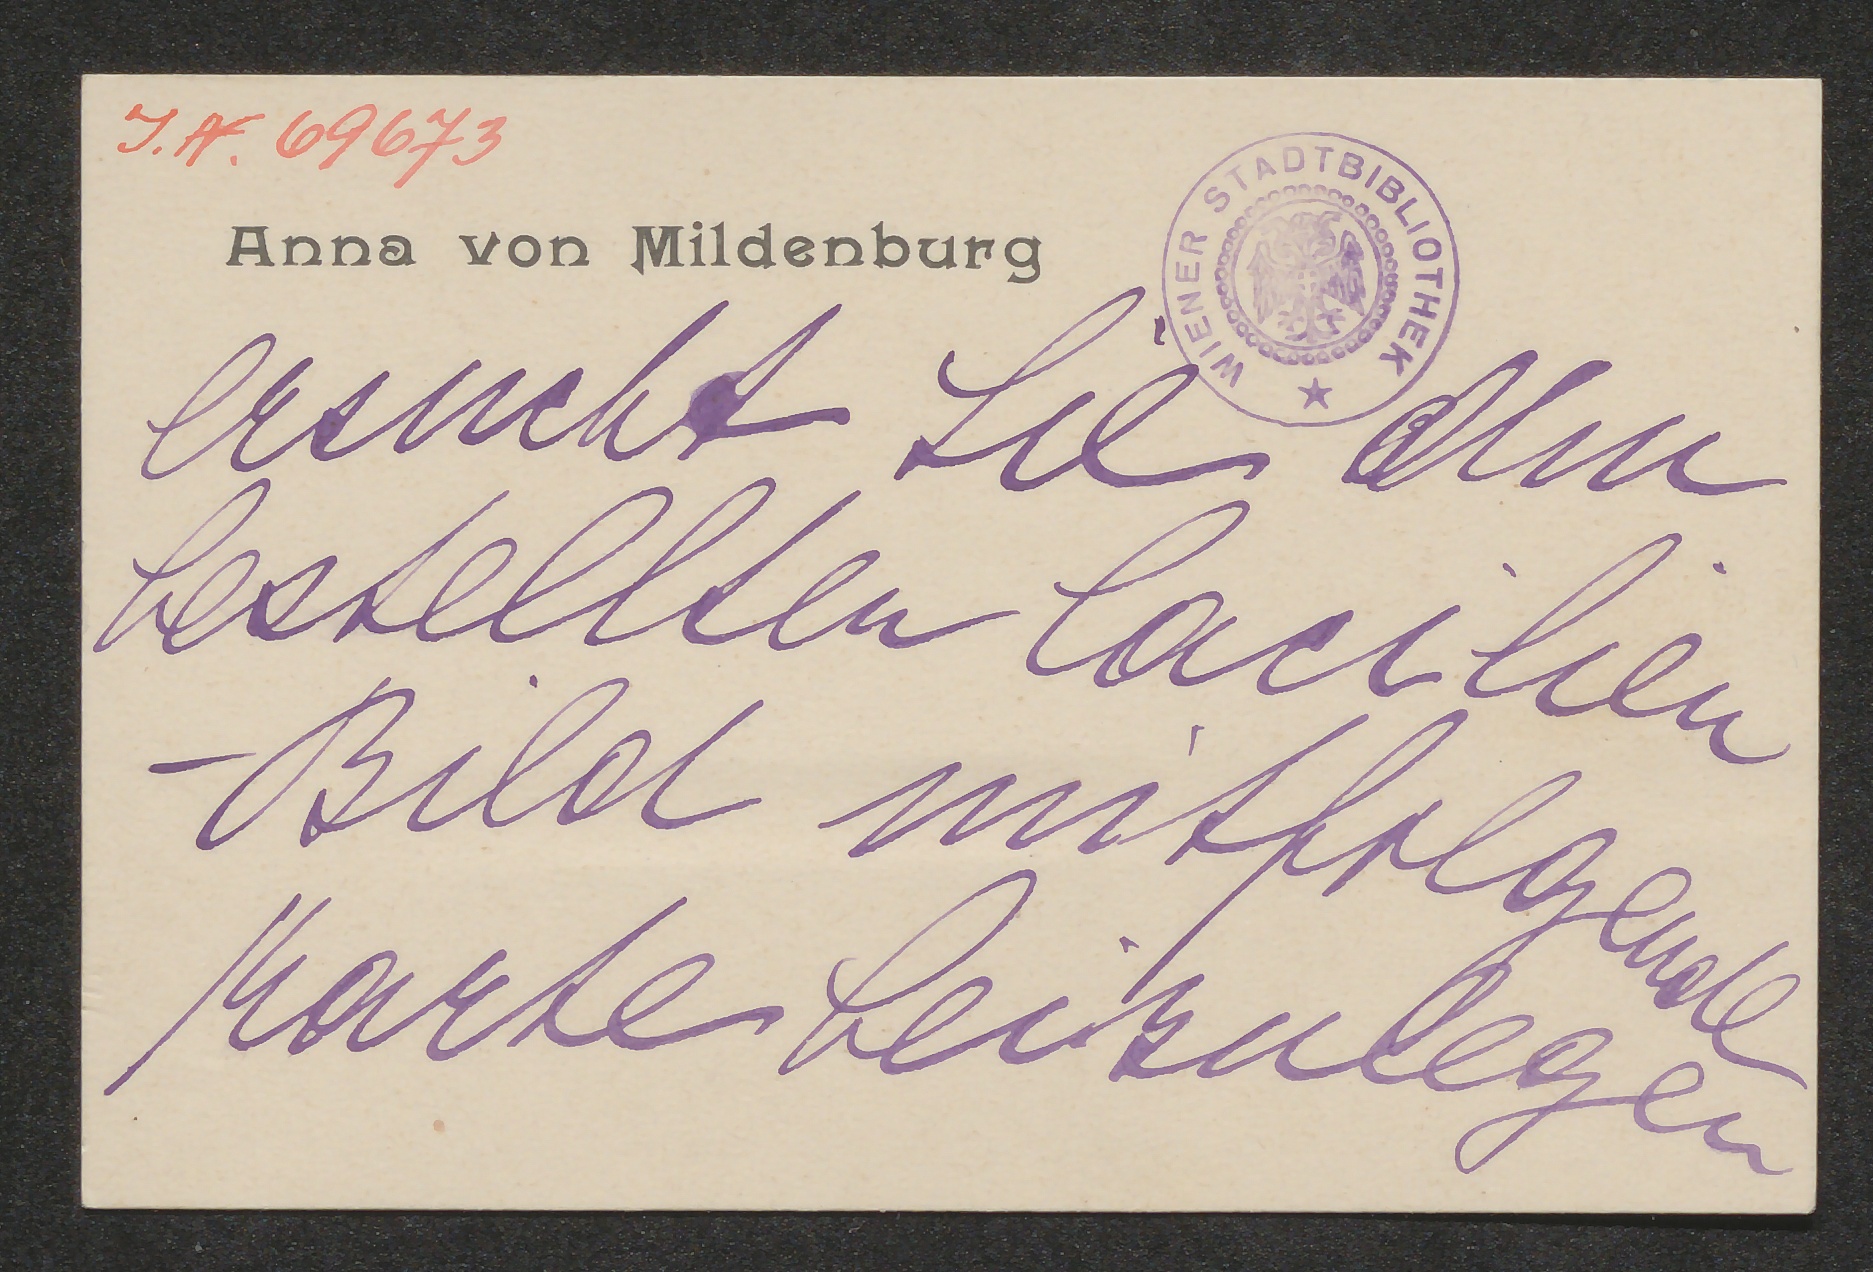 J.N. 69673
WIENER STADTBIBLIOTHEK
Anna von Mildenburg
ersucht Sie dem
bestellten Cäcilien
-Bild mitfolgende
Karte beizulegen